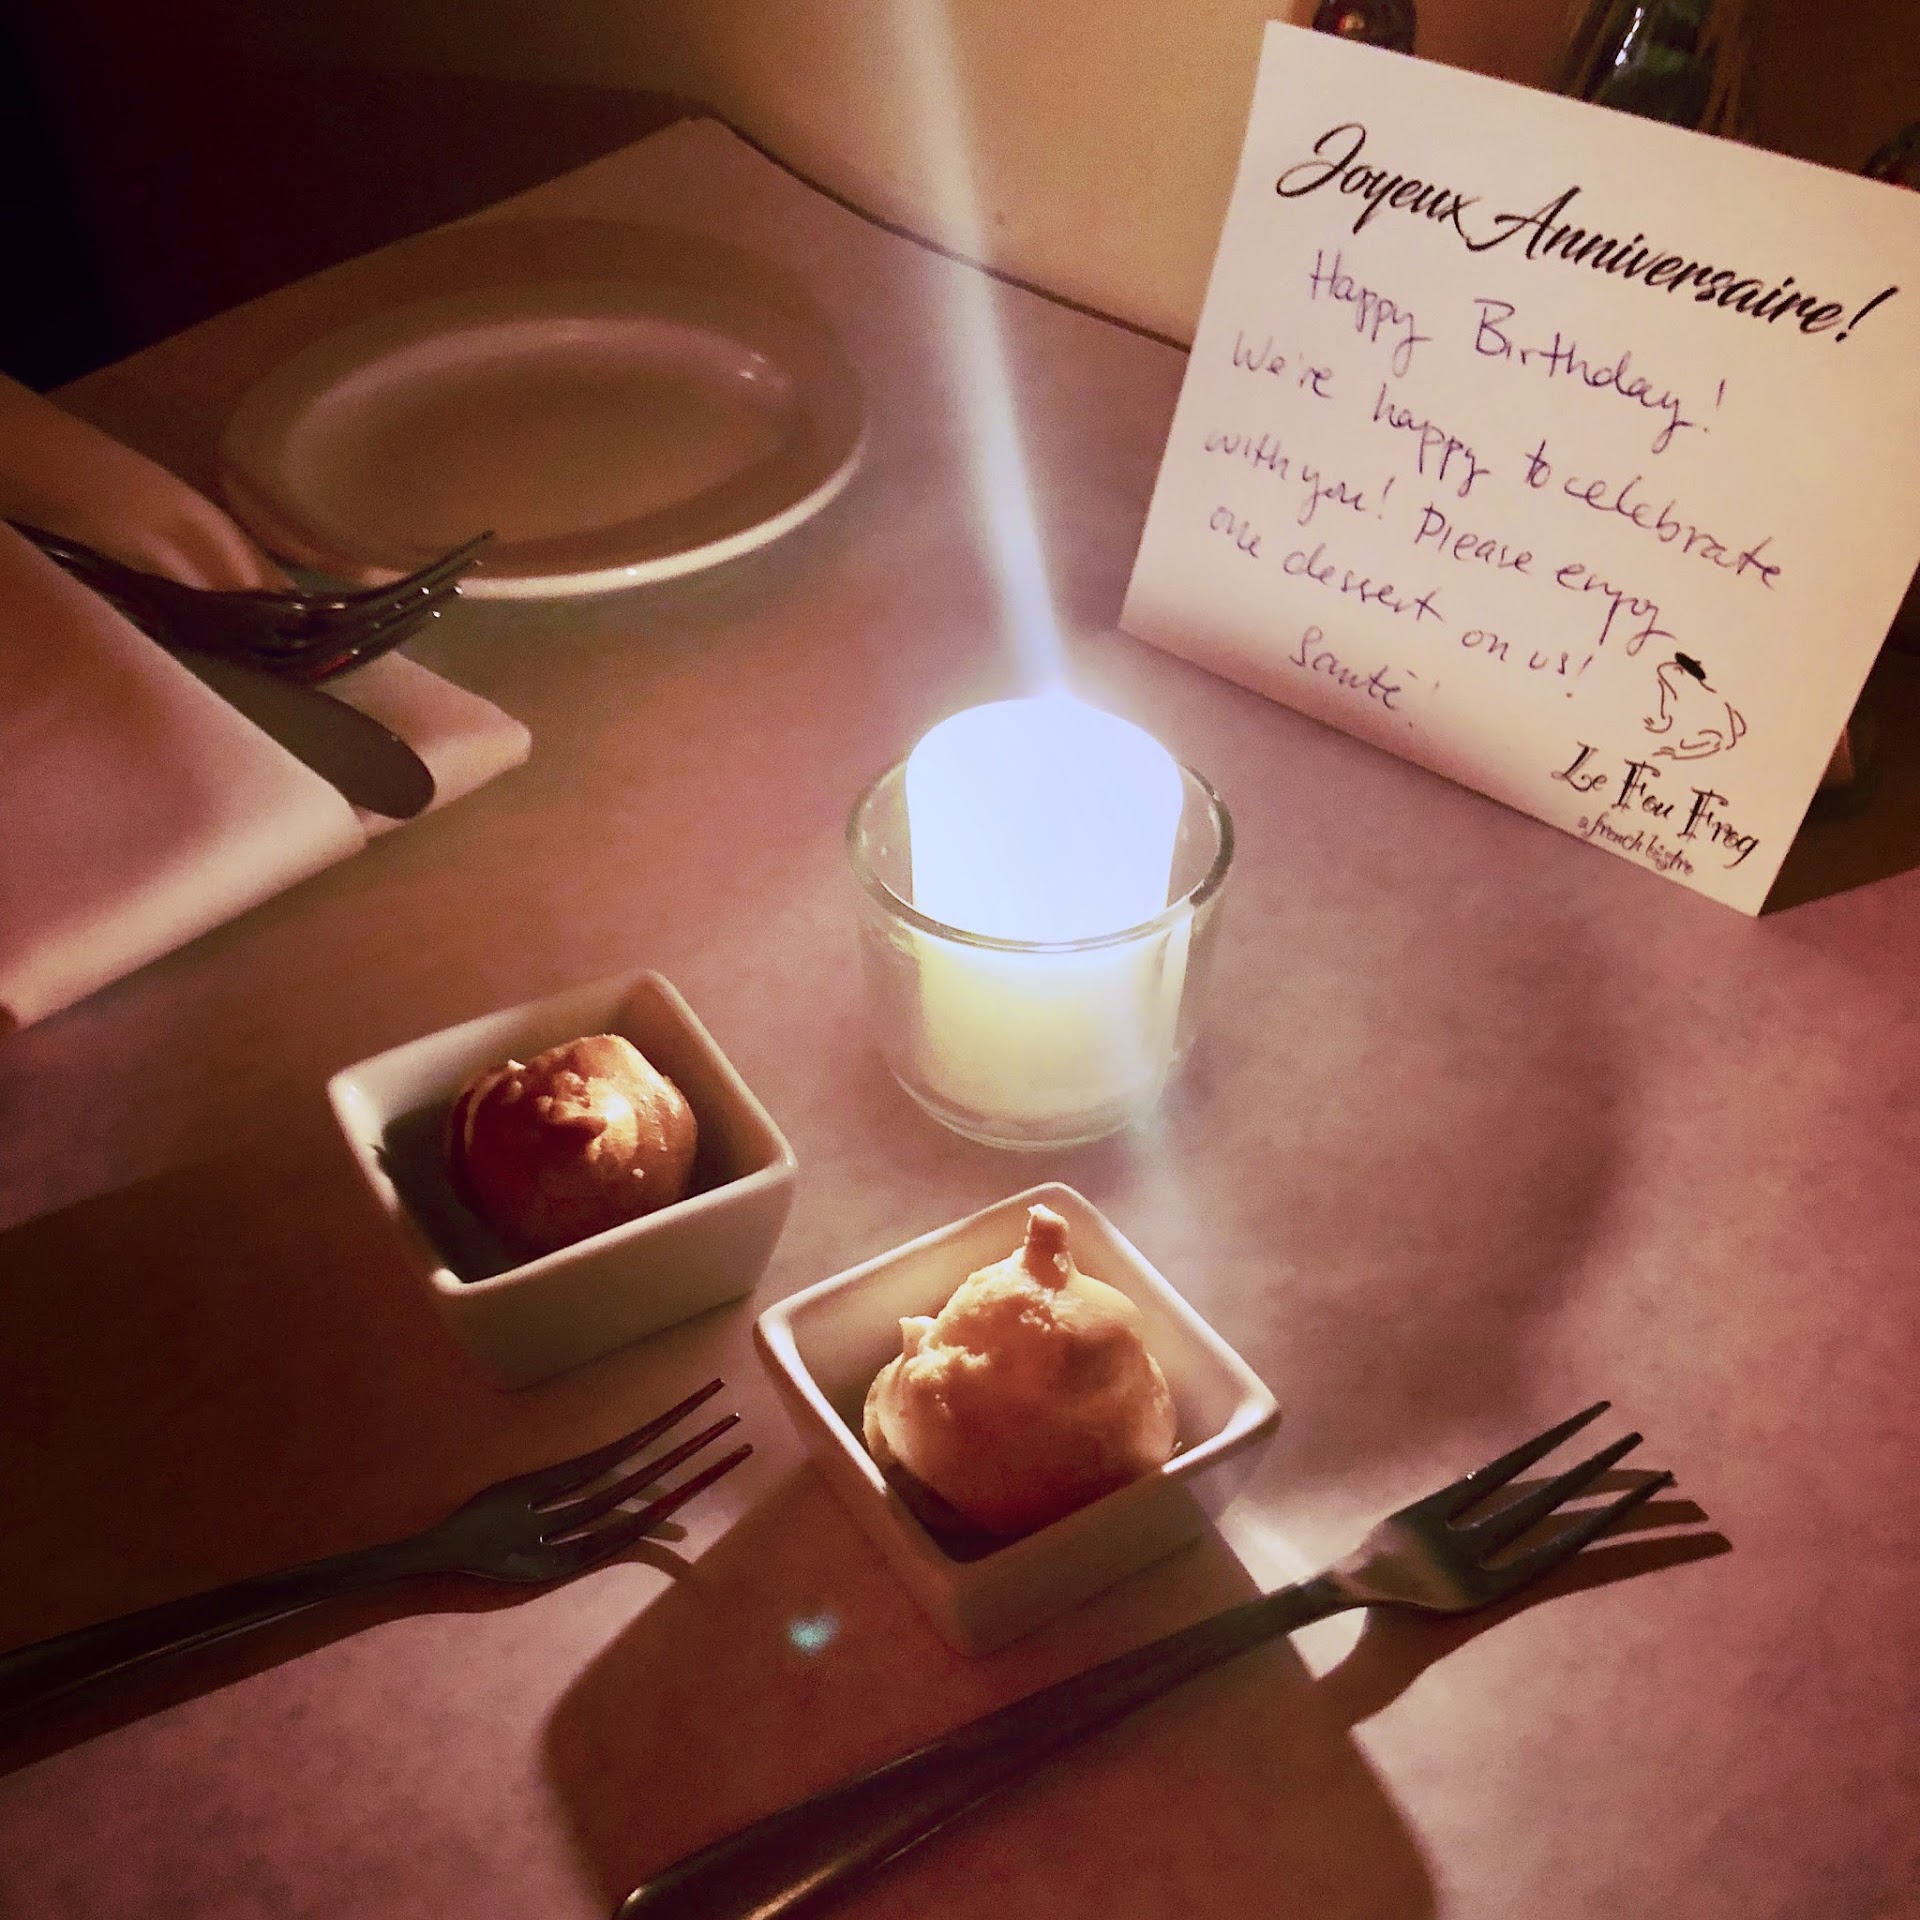 Joyeux Anniversaire!
Happy Birthday!
We're happy to celebrate
with you! Please enjoy
one dessert on us!
Santé!
Le Fou Frog
a french bistro